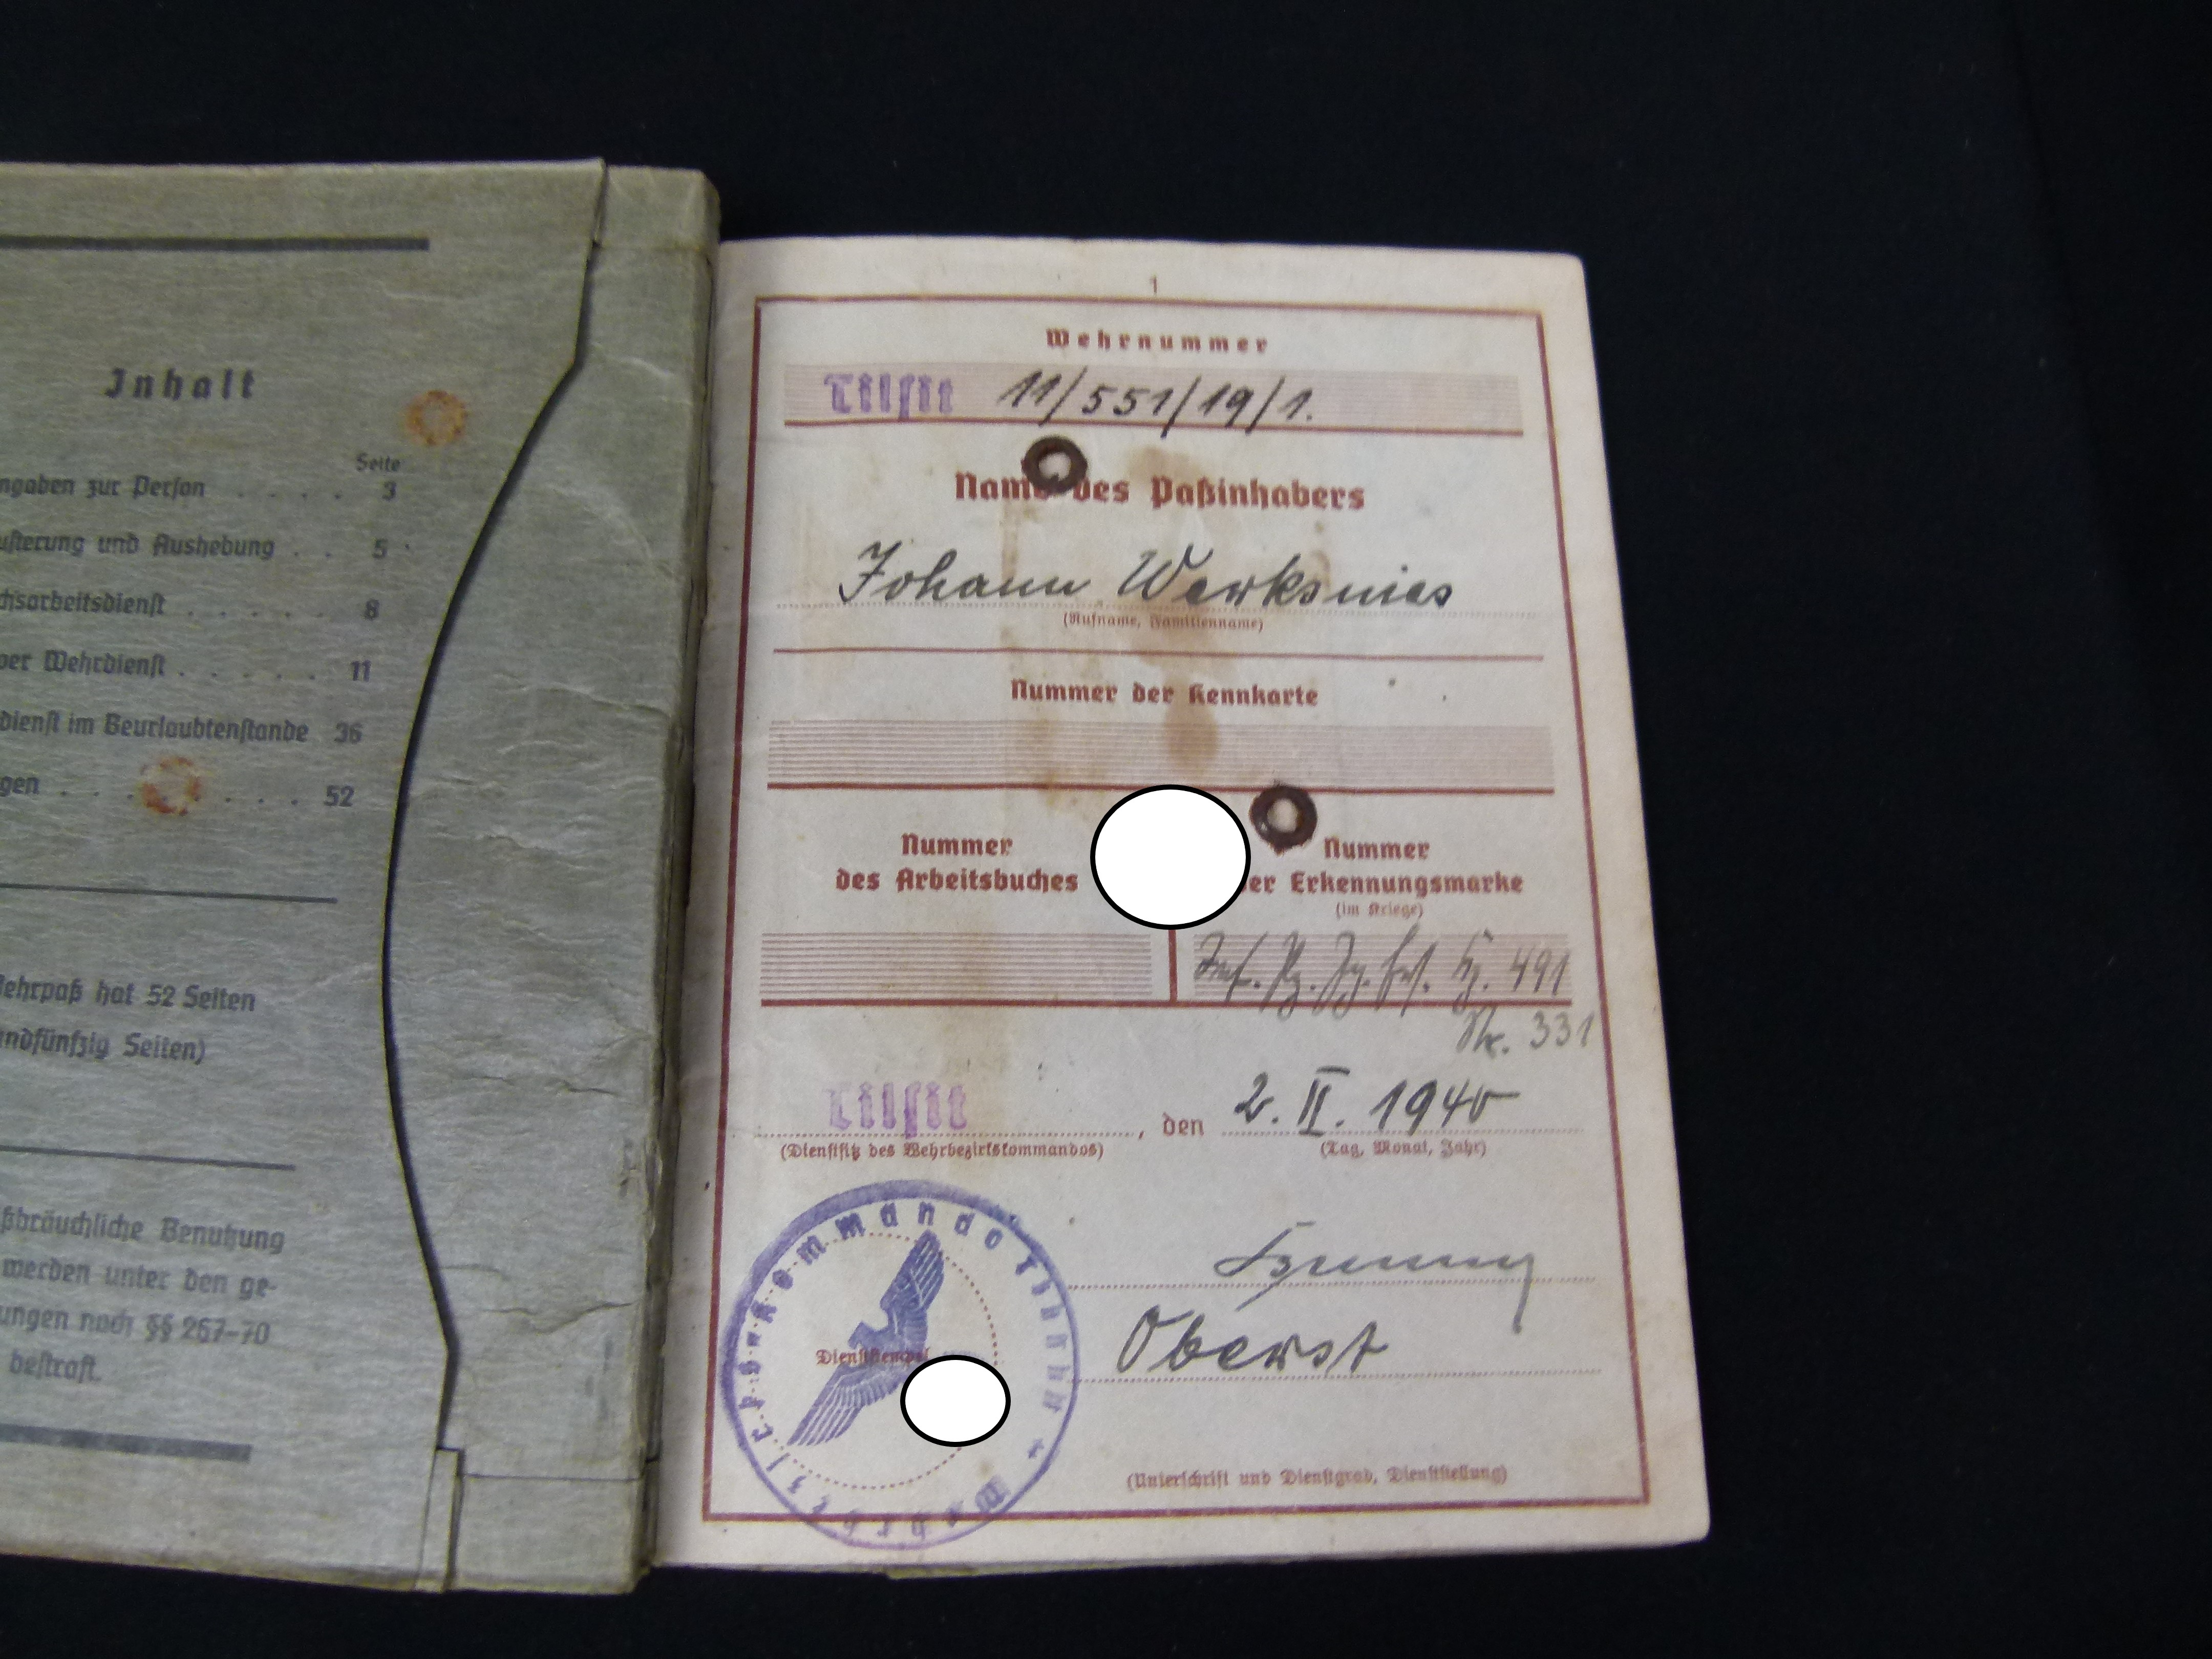 Inhalt
Seite
ngaben zur Person . . . . 3
usterung und Aushebung . . 5
chsarbeitsdienst . . . . . 8
ver Wehrdienst . . . . . . 11
dienst im Beurlaubtenstande 36
gen . . . . . . . . 52
Wehrpaß hat 52 Seiten
undfünfzig Seiten)
ßbräuchliche Benutzung
werden unter den ge-
ungen nach §§ 267-70
bestraft.
1
Wehrnummer
Tilsit 11/551/19/1.
Name des Paßinhabers
Johann Werksnies
(Rufname, Familienname)
Nummer der Kennkarte
Nummer
des Arbeitsbuches
Nummer
der Erkennungsmarke
(im Kriege)
Inf. Pz. Jg. 491
Nr. 331
Tilsit, den 2. II. 1940
(Dienstsitz des Wehrbezirkskommandos)
(Tag, Monat, Jahr)
Oberst
Dienststempel
Wehrbezirks-Kommando Tilsit
(Unterschrift und Dienstgrad, Dienststellung)